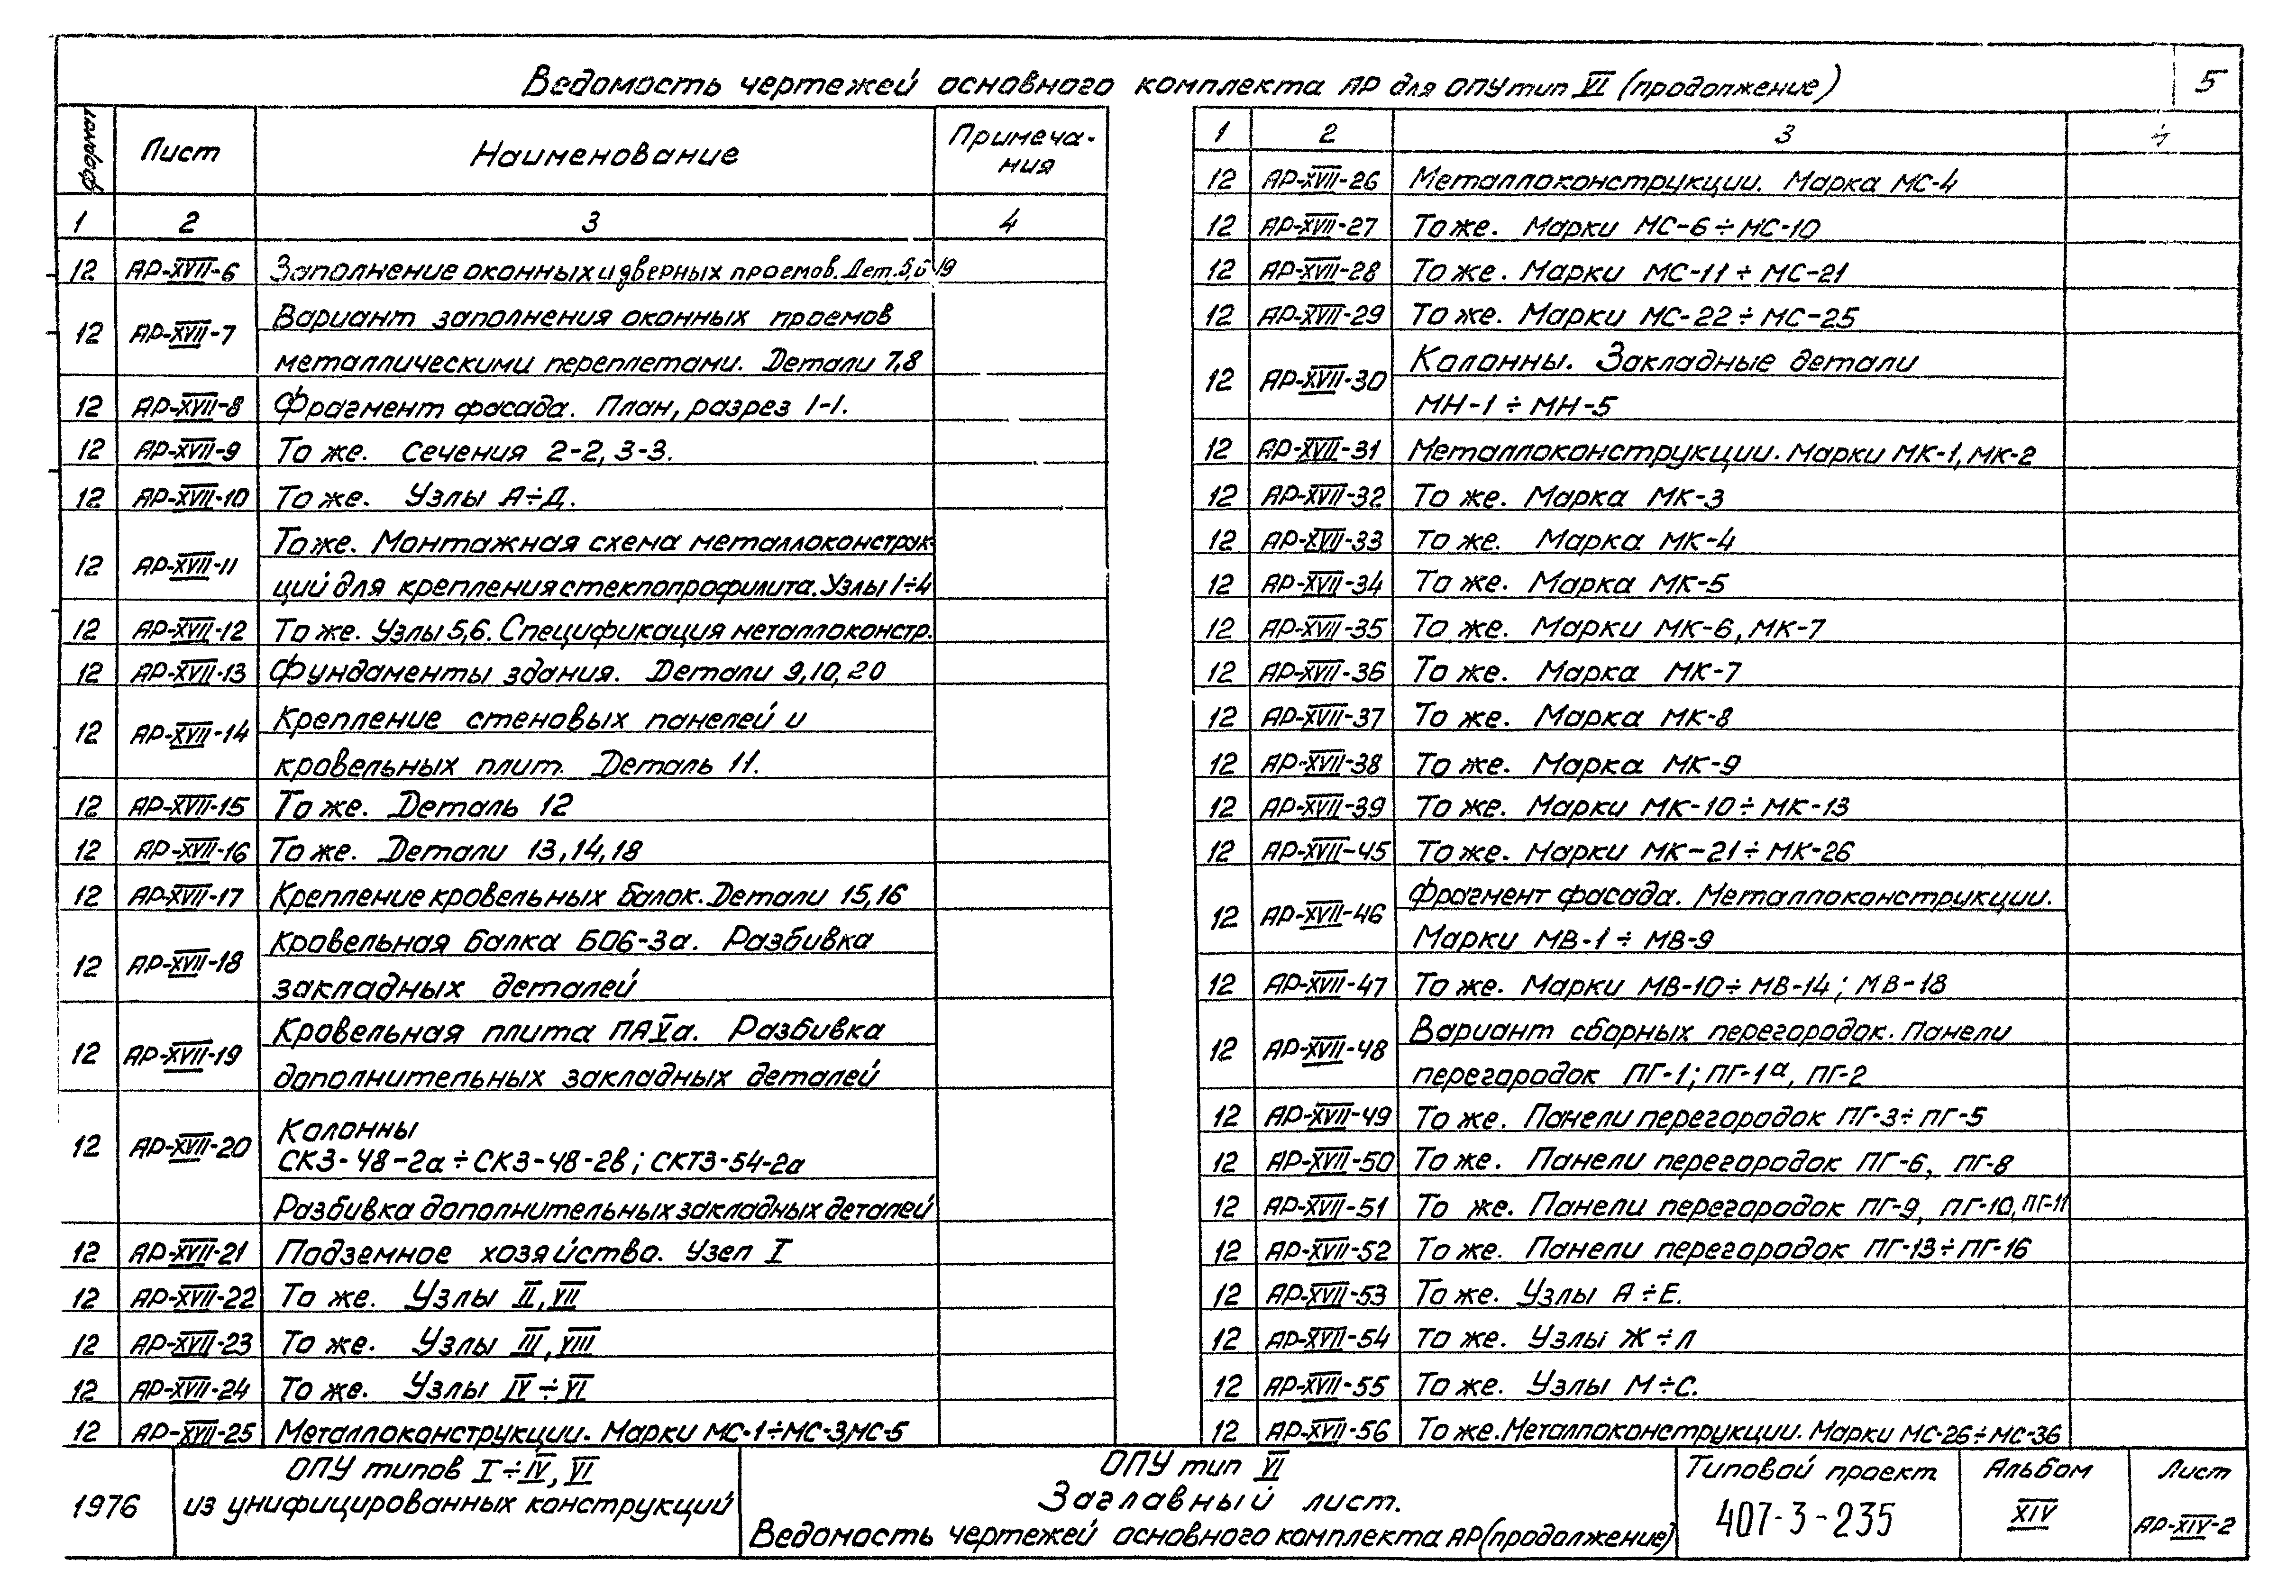 Ведомость чертежей основного комплекта АР для ОПУ тип VI (продолжение)
5
Формат Лист Наименование Примеча-
ния
1 2 3 4
12 АР-XVII-6 Заполнение оконных и дверных проемов. Дет. 5,6 19
12 АР-XVII-7 Вариант заполнения оконных проемов
металлическими переплетами. Детали 7,8
12 АР-XVII-8 Фрагмент фасада. План, разрез 1-1.
12 АР-XVII-9 То же. Сечения 2-2, 3-3.
12 АР-XVII-10 То же. Узлы А÷Д.
12 АР-XVII-11 То же. Монтажная схема металлоконструк-
ций для крепления стеклопрофилита. Узлы 1÷4
12 АР-XVII-12 То же. Узлы 5,6. Спецификация металлоконстр.
12 АР-XVII-13 Фундаменты здания. Детали 9,10,20
12 АР-XVII-14 Крепление стеновых панелей и
кровельных плит. Деталь 11.
12 АР-XVII-15 То же. Деталь 12
12 АР-XVII-16 То же. Детали 13,14,18
12 АР-XVII-17 Крепление кровельных балок. Детали 15,16
12 АР-XVII-18 Кровельная балка БО6-3а. Разбивка
закладных деталей
12 АР-XVII-19 Кровельная плита ПАVа. Разбивка
дополнительных закладных деталей
12 АР-XVII-20 Колонны
СК3-48-2а÷СК3-48-2в; СКТ3-54-2а
Разбивка дополнительных закладных деталей
12 АР-XVII-21 Подземное хозяйство. Узел I
12 АР-XVII-22 То же. Узлы II, VII
12 АР-XVII-23 То же. Узлы III, VIII
12 АР-XVII-24 То же. Узлы IV÷VI
12 АР-XVII-25 Металлоконструкции. Марки МС-1÷МС-3, МС-5
1 2 3 4
12 АР-XVII-26 Металлоконструкции. Марка МС-4
12 АР-XVII-27 То же. Марки МС-6÷МС-10
12 АР-XVII-28 То же. Марки МС-11÷МС-21
12 АР-XVII-29 То же. Марки МС-22÷МС-25
12 АР-XVII-30 Колонны. Закладные детали
МН-1÷МН-5
12 АР-XVII-31 Металлоконструкции. Марки МК-1, МК-2
12 АР-XVII-32 То же. Марка МК-3
12 АР-XVII-33 То же. Марка МК-4
12 АР-XVII-34 То же. Марка МК-5
12 АР-XVII-35 То же. Марки МК-6, МК-7
12 АР-XVII-36 То же. Марка МК-7
12 АР-XVII-37 То же. Марка МК-8
12 АР-XVII-38 То же. Марка МК-9
12 АР-XVII-39 То же. Марки МК-10÷МК-13
12 АР-XVII-45 То же. Марки МК-21÷МК-26
12 АР-XVII-46 Фрагмент фасада. Металлоконструкции.
Марки МВ-1÷МВ-9
12 АР-XVII-47 То же. Марки МВ-10÷МВ-14; МВ-18
12 АР-XVII-48 Вариант сборных перегородок. Панели
перегородок ПГ-1; ПГ-1а, ПГ-2
12 АР-XVII-49 То же. Панели перегородок ПГ-3÷ПГ-5
12 АР-XVII-50 То же. Панели перегородок ПГ-6, ПГ-8
12 АР-XVII-51 То же. Панели перегородок ПГ-9, ПГ-10, ПГ-11
12 АР-XVII-52 То же. Панели перегородок ПГ-13÷ПГ-16
12 АР-XVII-53 То же. Узлы А÷Е.
12 АР-XVII-54 То же. Узлы Ж÷Л
12 АР-XVII-55 То же. Узлы М÷С.
12 АР-XVII-56 То же. Металлоконструкции. Марки МС-26÷МС-36
1976
ОПУ типов I÷IV, VI
из унифицированных конструкций
ОПУ тип VI
Заглавный лист.
Ведомость чертежей основного комплекта АР (продолжение)
Типовой проект
407-3-235
Альбом
XIV
Лист
АР-XIV-2